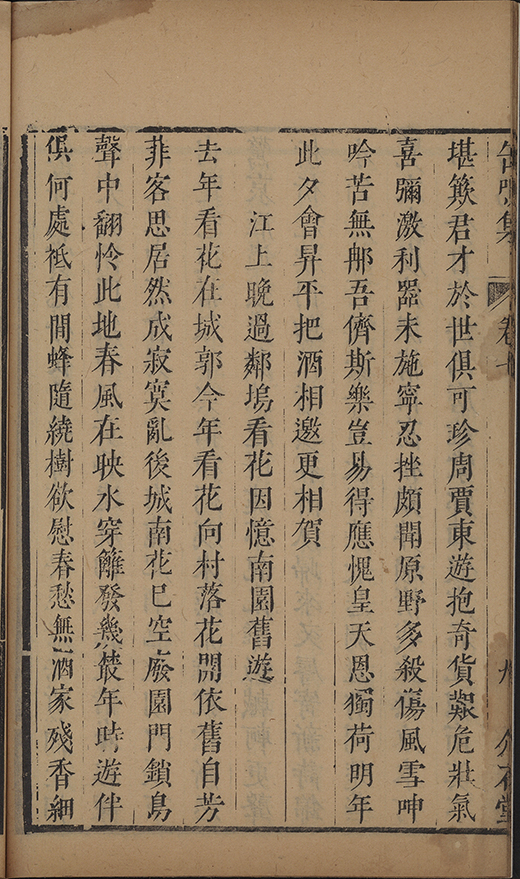 缶鳴集 卷十 九 介石堂
堪歎君才於世俱可珍周賈東遊抱奇貨艱危壯氣
喜彌激利器未施寧忍挫頗聞原野多殺傷風雪呻
吟苦無那吾儕斯樂豈易得應愧皇天恩獨荷明年
此夕會昇平把酒相邀更相賀
江上晚過鄰塢看花因憶南園舊遊
去年看花在城郭今年看花向村落花開依舊自芳
菲客思居然成寂寞亂後城南花已空廢園門鎖鳥
聲中翻憐此地春風在映水穿籬發幾叢年時遊伴
俱何處祗有閒蜂隨繞樹欲慰春愁無酒家殘香細